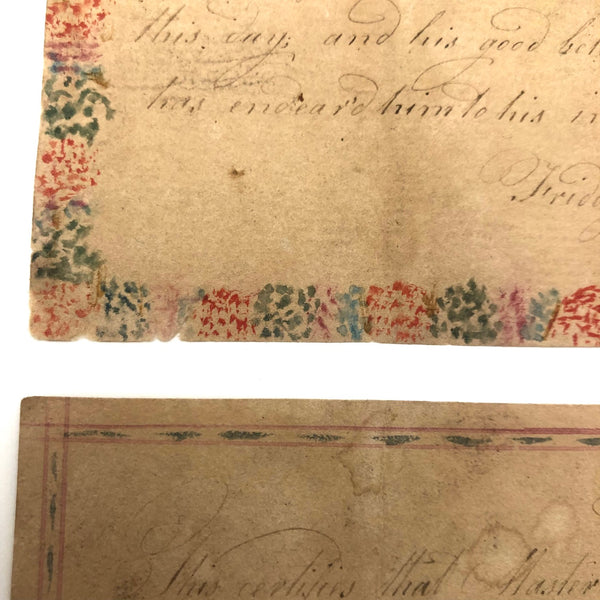 this day, and his good be
has endear'd him to his in
Frid
This certifies that Master